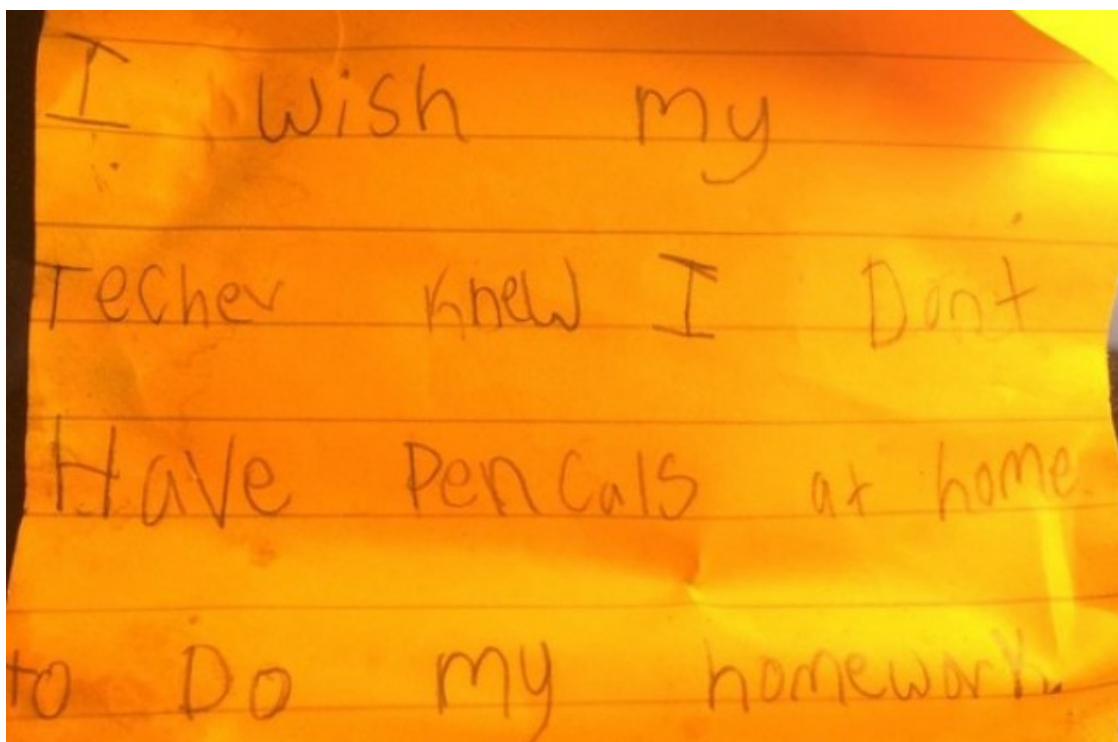 I wish my
Techer knew I Dont
Have pencals at home
to Do my homework.